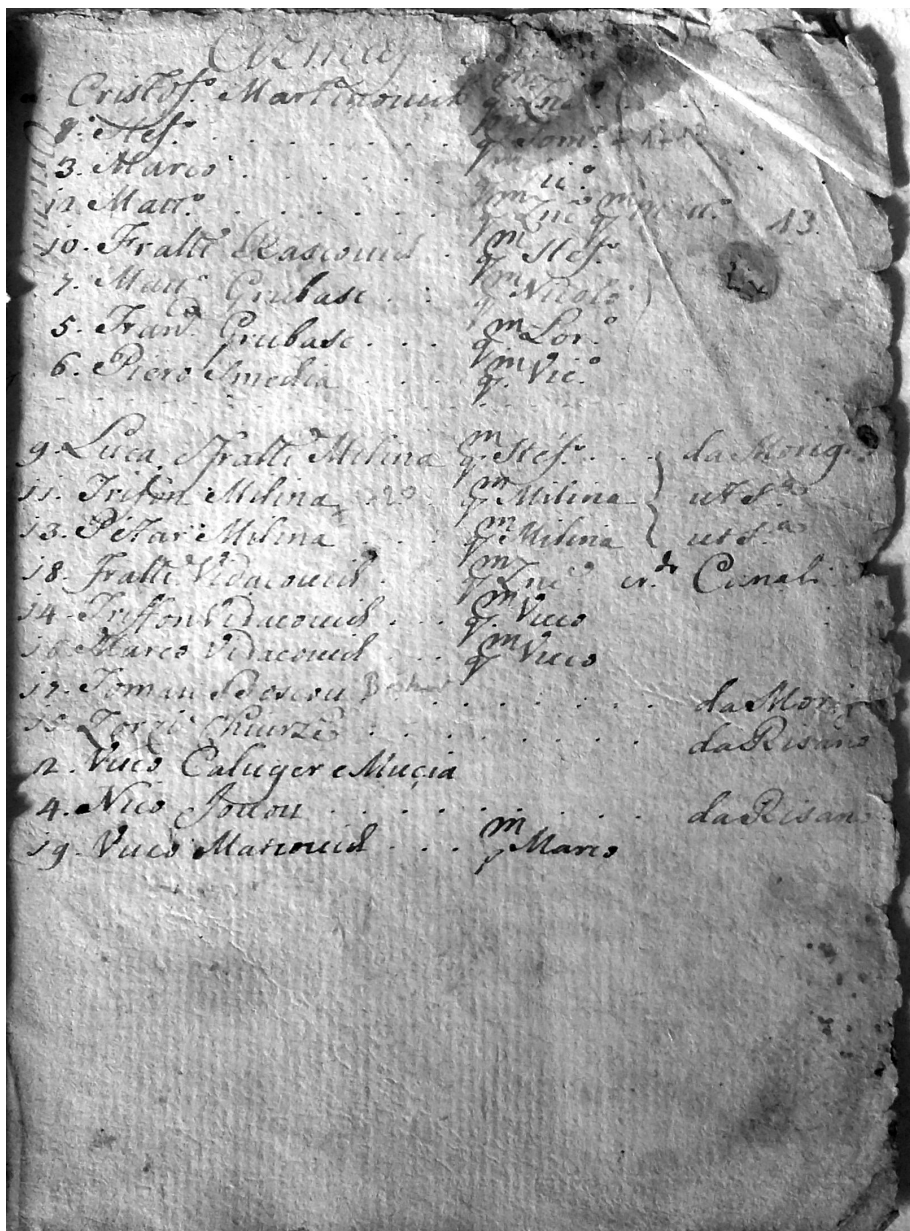 Cristof.º Martinouich q.m Znē.º
8. Stef.º . . . . . . . q.m Tom.º
3. Marco . . . . . . q.m
12. Matt.º . . . . . q.m Znē q.m 13.
10. Fratti Rascouich . q.m Stef.º
7. Matt.º Grubasc . . q.m Nicolò
5. Fran.co Grubasc . . . q.m Lor.º
6. Piero Smechia . . . q.m Vic.º
9. Luca, e fratti Milina q.m Stef.º . . . da Morig.º
11. Trifon Milina q.m Milina ut s.a
13. Pètar Milina . . . q.m Milina ut s.a
18. Fratti Vidacouich . . . q.m Znē.º Canali
14. Triffon Vidacouich . . . q.m Vuco
16. Marco Vidacouich . . . q.m Vuco
17. Toman Boscou . . . . . . . . da Morig
15. Zorzi Chiurzè . . . . . . . da Risano
2. Vuco Caluger e Mucia
4. Nico Jouou . . . . . . . . . da Risano
19. Vuco Marcouich . . . q.m Marco